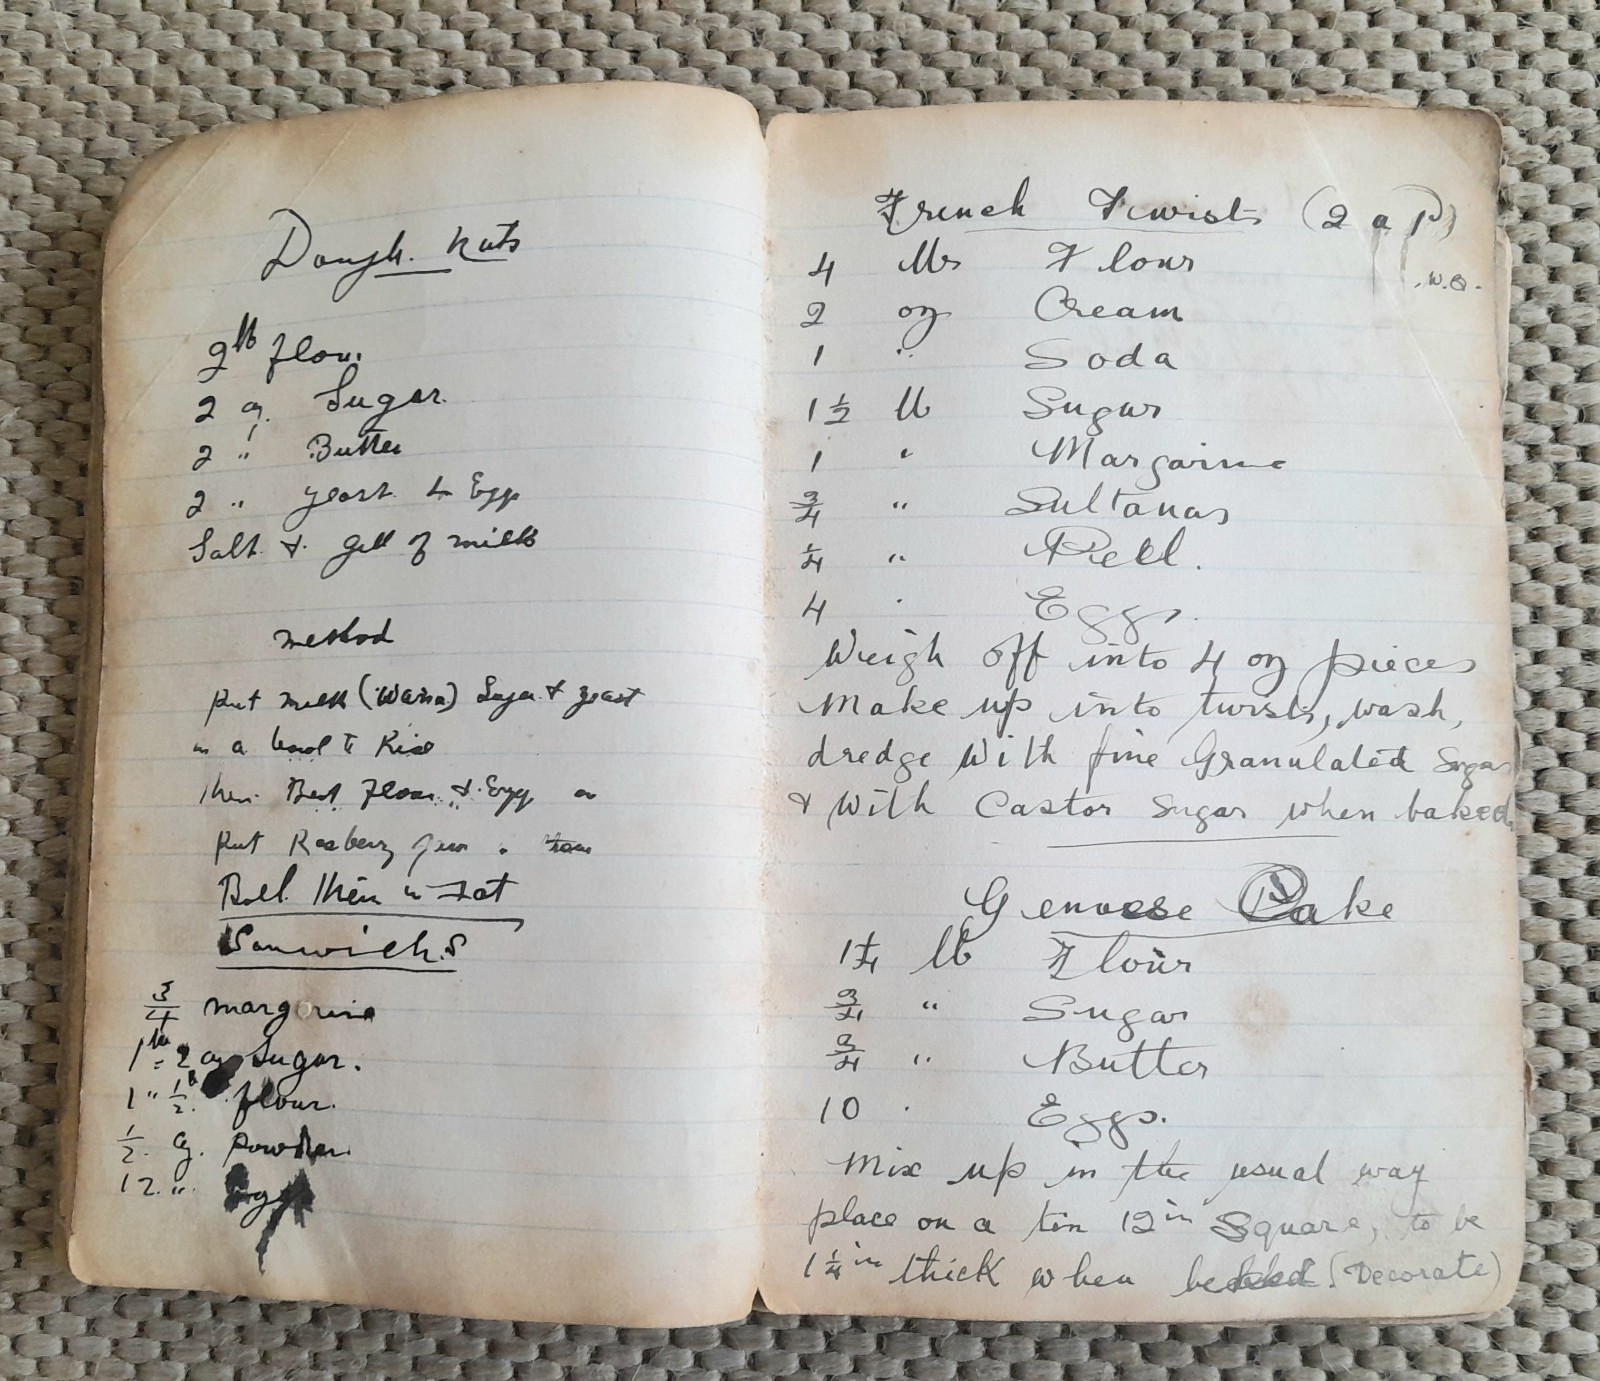 Dough. nuts
2 lb flour
2 oz. Sugar.
2 " Butter
2 " yeast 4 Egg
Salt & gill of milk
method
put milk (Warm) Sugar & yeast
in a bowl to Rise
then Beat Flour & Egg
put Rasberry Jam
Boil them in Fat
Sanwichs
3/4 margerine
1 lb = 2 oz Sugar.
1 " 1/2 flour.
1/2 oz. Powder
12 " Eggs
French Twists (2 a P)
W.Q.
4 lbs Flour
2 oz Cream
1 " Soda
1 1/2 lb Sugar
1 " Margarine
3/4 " Sultanas
1/4 " Peel.
4 Eggs.
Weigh off into 4 oz pieces
Make up into twists, wash,
dredge With fine Granulated Sugar
& With Castor Sugar when baked
Genoese Cake
1 1/4 lb Flour
3/4 " Sugar
3/4 " Butter
10 Eggs.
Mix up in the usual way
place on a tin 12 in Square, to be
1 1/4 in thick when baked. (Decorate)